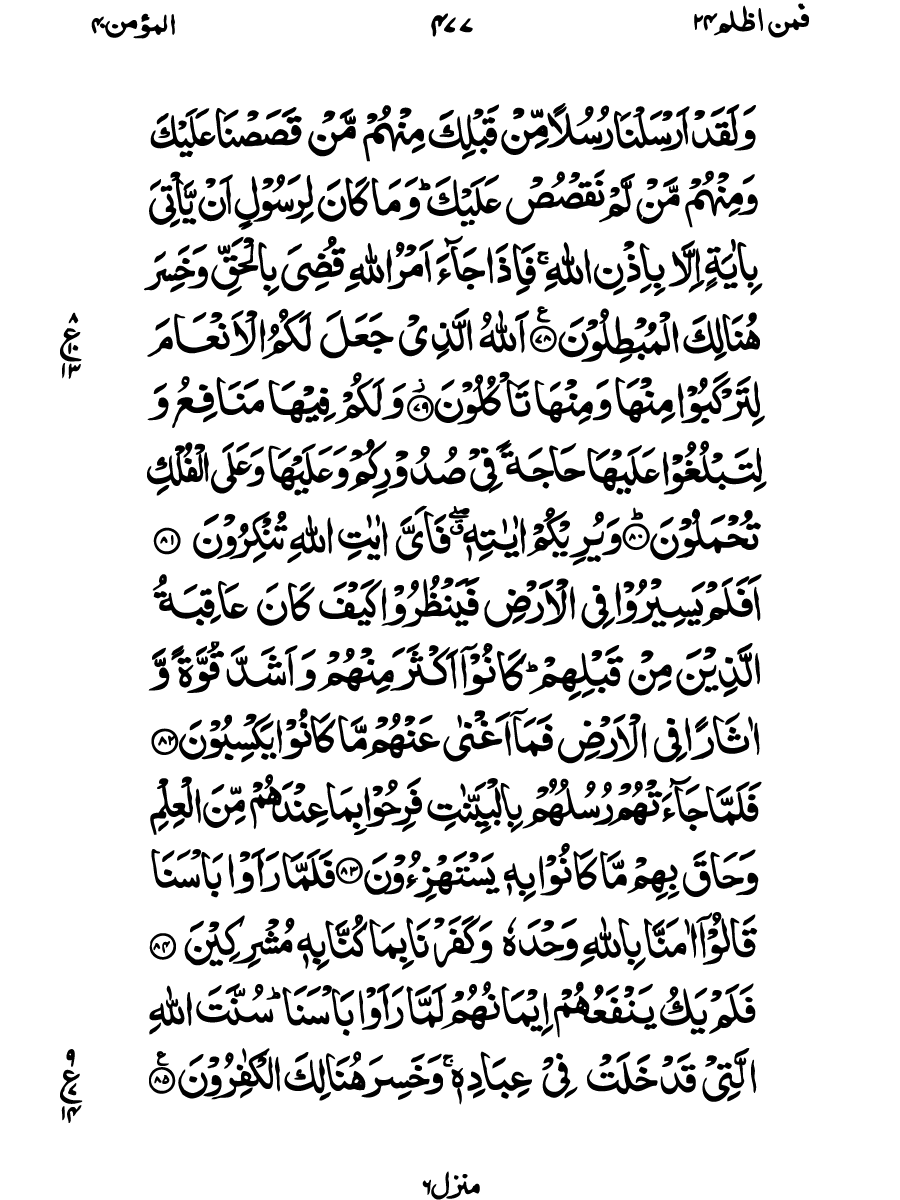 فمن اظلم ۲۴ ۴۷۷ المؤمن ۴۰
وَلَقَدْ اَرْسَلْنَا رُسُلًا مِّنْ قَبْلِكَ مِنْهُمْ مَّنْ قَصَصْنَا عَلَيْكَ
وَمِنْهُمْ مَّنْ لَّمْ نَقْصُصْ عَلَيْكَ ؕ وَمَا كَانَ لِرَسُوْلٍ اَنْ يَّاْتِيَ
بِاٰيَةٍ اِلَّا بِاِذْنِ اللّٰهِ ۚ فَاِذَا جَآءَ اَمْرُ اللّٰهِ قُضِيَ بِالْحَقِّ وَخَسِرَ
هُنَالِكَ الْمُبْطِلُوْنَ ﴿۷۸﴾ ع اَللّٰهُ الَّذِيْ جَعَلَ لَكُمُ الْاَنْعَامَ
۸ ع ۱۰ ۱۳
لِتَرْكَبُوْا مِنْهَا وَمِنْهَا تَاْكُلُوْنَ ﴿۷۹﴾ ز وَلَكُمْ فِيْهَا مَنَافِعُ وَ
لِتَبْلُغُوْا عَلَيْهَا حَاجَةً فِيْ صُدُوْرِكُمْ وَعَلَيْهَا وَعَلَى الْفُلْكِ
تُحْمَلُوْنَ ﴿۸۰﴾ ؕ وَيُرِيْكُمْ اٰيٰتِهٖ ۖ فَاَيَّ اٰيٰتِ اللّٰهِ تُنْكِرُوْنَ ﴿۸۱﴾
اَفَلَمْ يَسِيْرُوْا فِي الْاَرْضِ فَيَنْظُرُوْا كَيْفَ كَانَ عَاقِبَةُ
الَّذِيْنَ مِنْ قَبْلِهِمْ ؕ كَانُوْۤا اَكْثَرَ مِنْهُمْ وَاَشَدَّ قُوَّةً وَّ
اٰثَارًا فِي الْاَرْضِ فَمَاۤ اَغْنٰى عَنْهُمْ مَّا كَانُوْا يَكْسِبُوْنَ ﴿۸۲﴾
فَلَمَّا جَآءَتْهُمْ رُسُلُهُمْ بِالْبَيِّنٰتِ فَرِحُوْا بِمَا عِنْدَهُمْ مِّنَ الْعِلْمِ
وَحَاقَ بِهِمْ مَّا كَانُوْا بِهٖ يَسْتَهْزِءُوْنَ ﴿۸۳﴾ فَلَمَّا رَاَوْا بَاْسَنَا
قَالُوْۤا اٰمَنَّا بِاللّٰهِ وَحْدَهٗ وَكَفَرْنَا بِمَا كُنَّا بِهٖ مُشْرِكِيْنَ ﴿۸۴﴾
فَلَمْ يَكُ يَنْفَعُهُمْ اِيْمَانُهُمْ لَمَّا رَاَوْا بَاْسَنَا ؕ سُنَّتَ اللّٰهِ
الَّتِيْ قَدْ خَلَتْ فِيْ عِبَادِهٖ ۚ وَخَسِرَ هُنَالِكَ الْكٰفِرُوْنَ ﴿۸۵﴾ ع
۹ ع ۷ ۱۴
منزل ۶